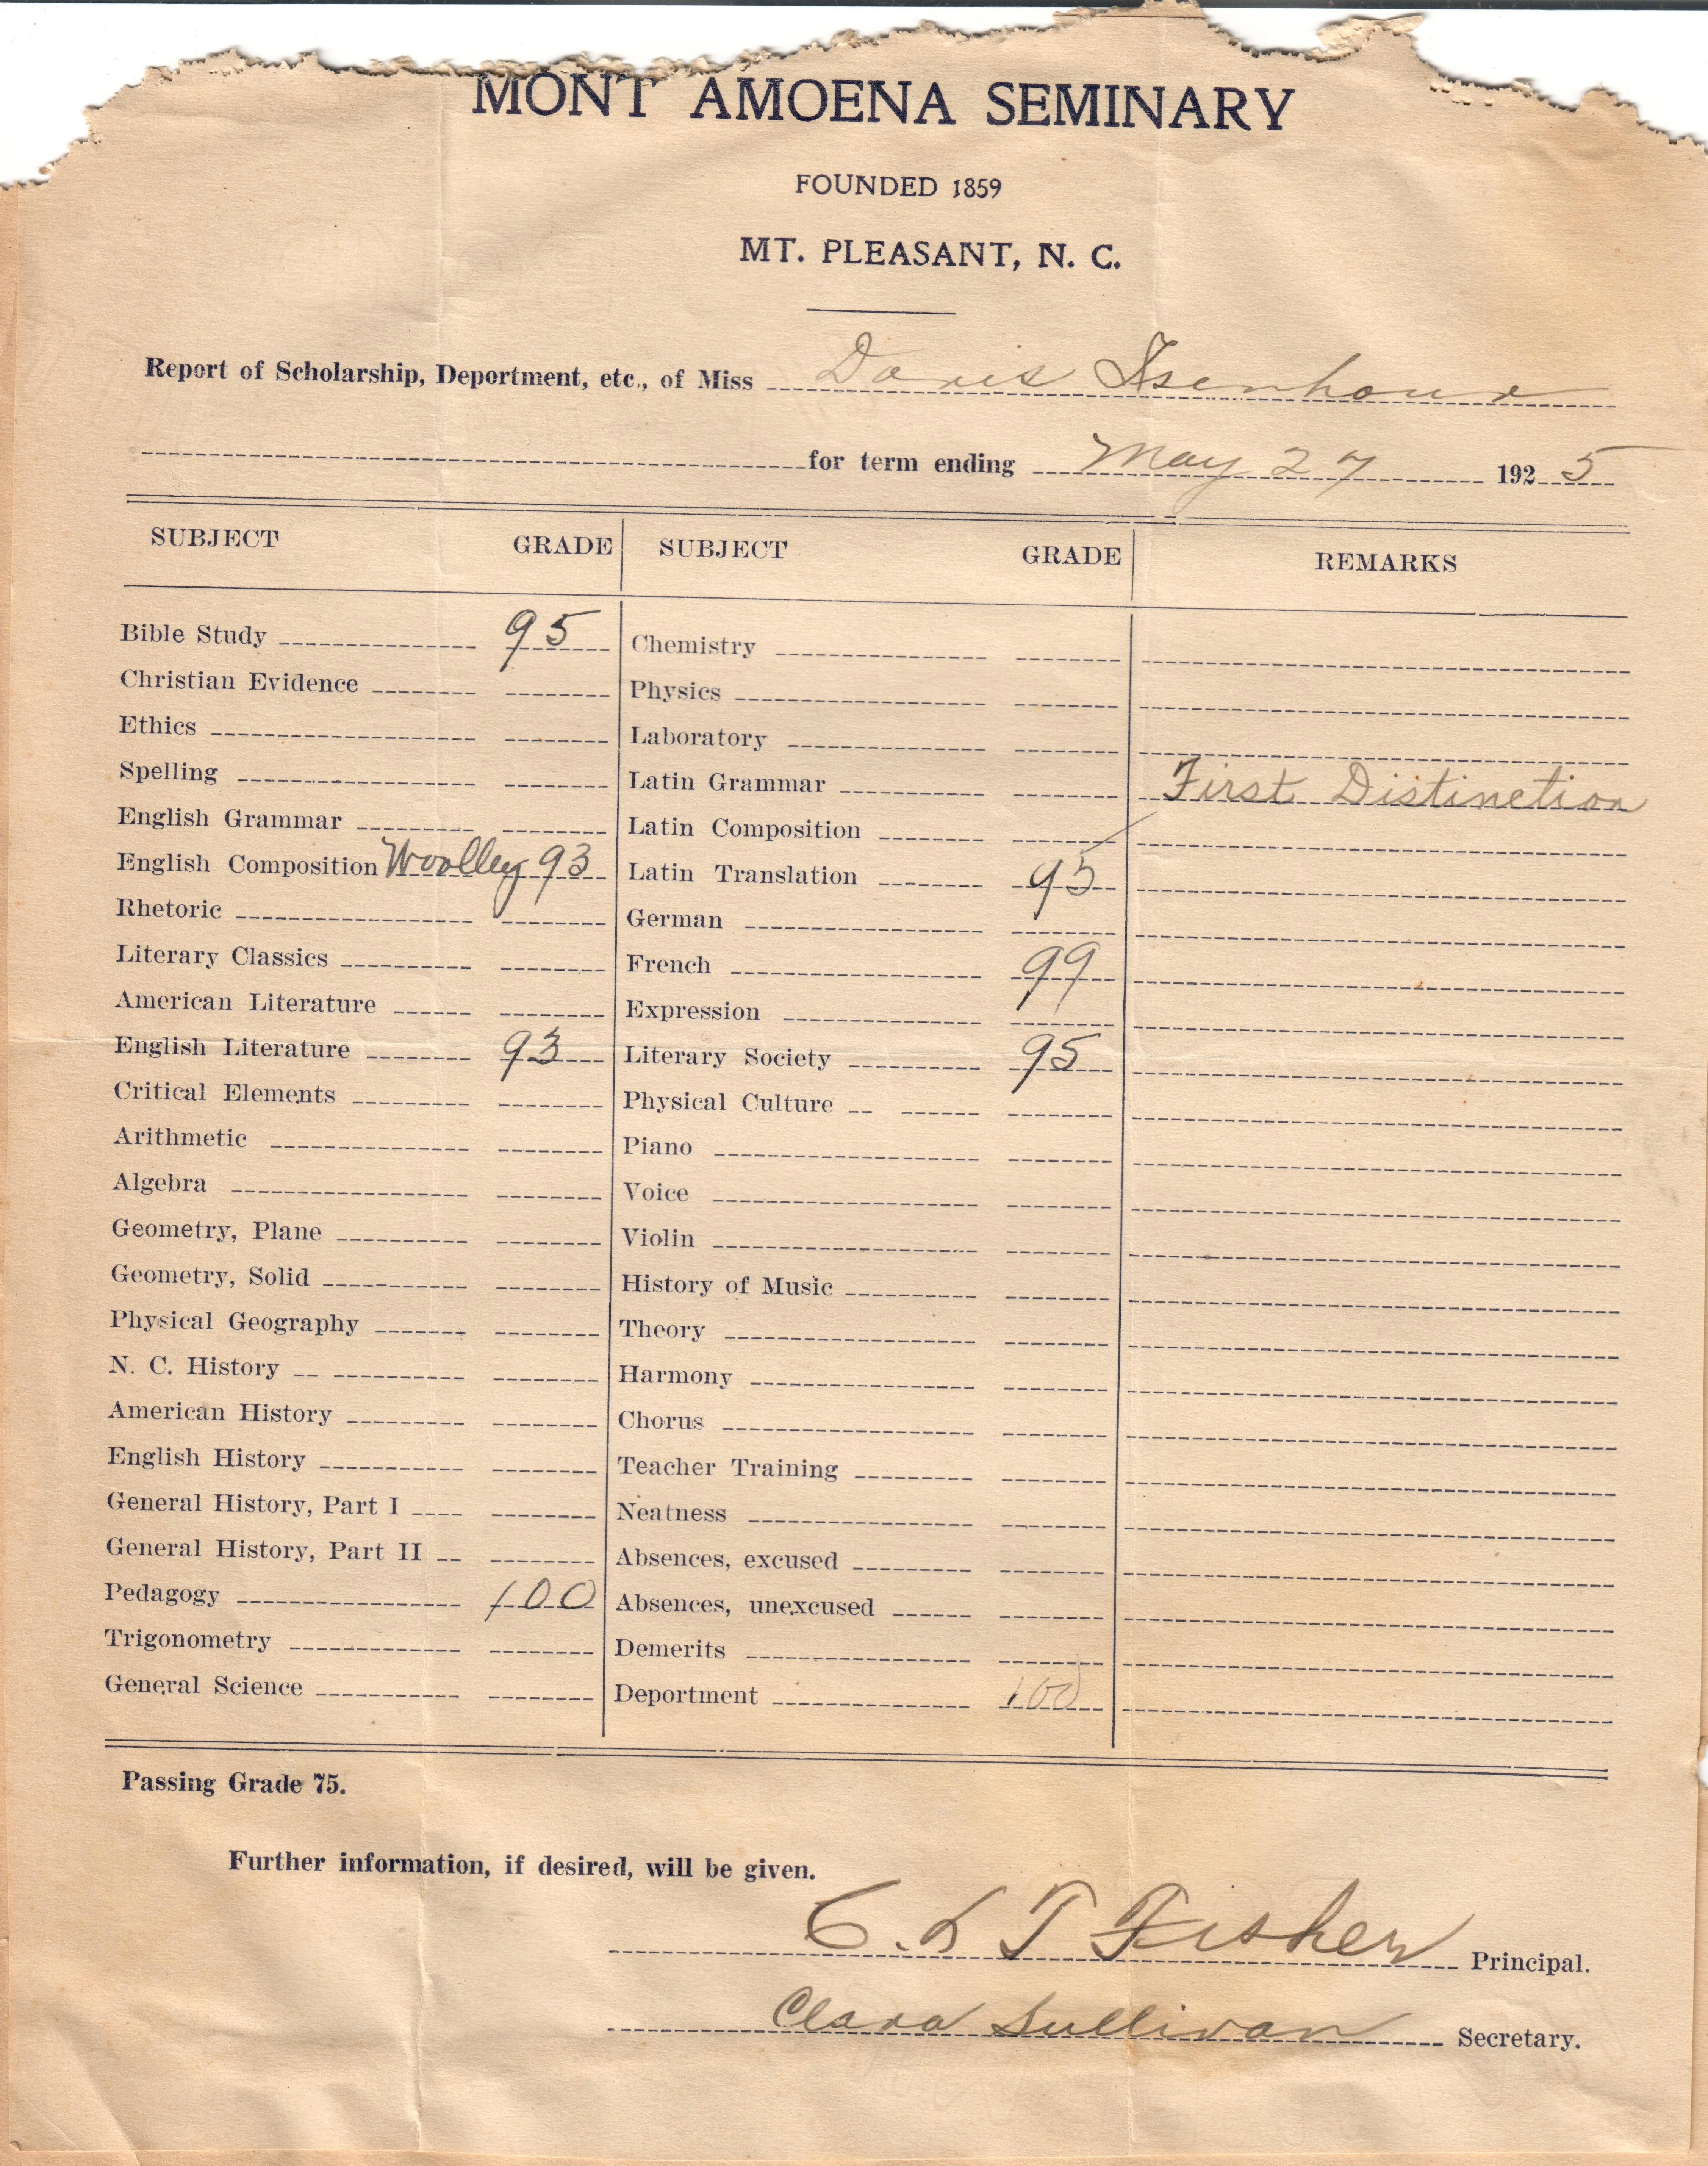 MONT AMOENA SEMINARY
FOUNDED 1859
MT. PLEASANT, N. C.
Report of Scholarship, Deportment, etc., of Miss Doris Isenhour
for term ending May 27 1925
SUBJECT GRADE SUBJECT GRADE REMARKS
Bible Study 95 Chemistry
Christian Evidence Physics
Ethics Laboratory
Spelling Latin Grammar First Distinction
English Grammar Latin Composition
English Composition Woolley 93 Latin Translation 95
Rhetoric German
Literary Classics French 99
American Literature Expression
English Literature 93 Literary Society 95
Critical Elements Physical Culture
Arithmetic Piano
Algebra Voice
Geometry, Plane Violin
Geometry, Solid History of Music
Physical Geography Theory
N. C. History Harmony
American History Chorus
English History Teacher Training
General History, Part I Neatness
General History, Part II Absences, excused
Pedagogy 100 Absences, unexcused
Trigonometry Demerits
General Science Deportment 100
Passing Grade 75.
Further information, if desired, will be given.
C. L T Fisher Principal.
Clara Sullivan Secretary.